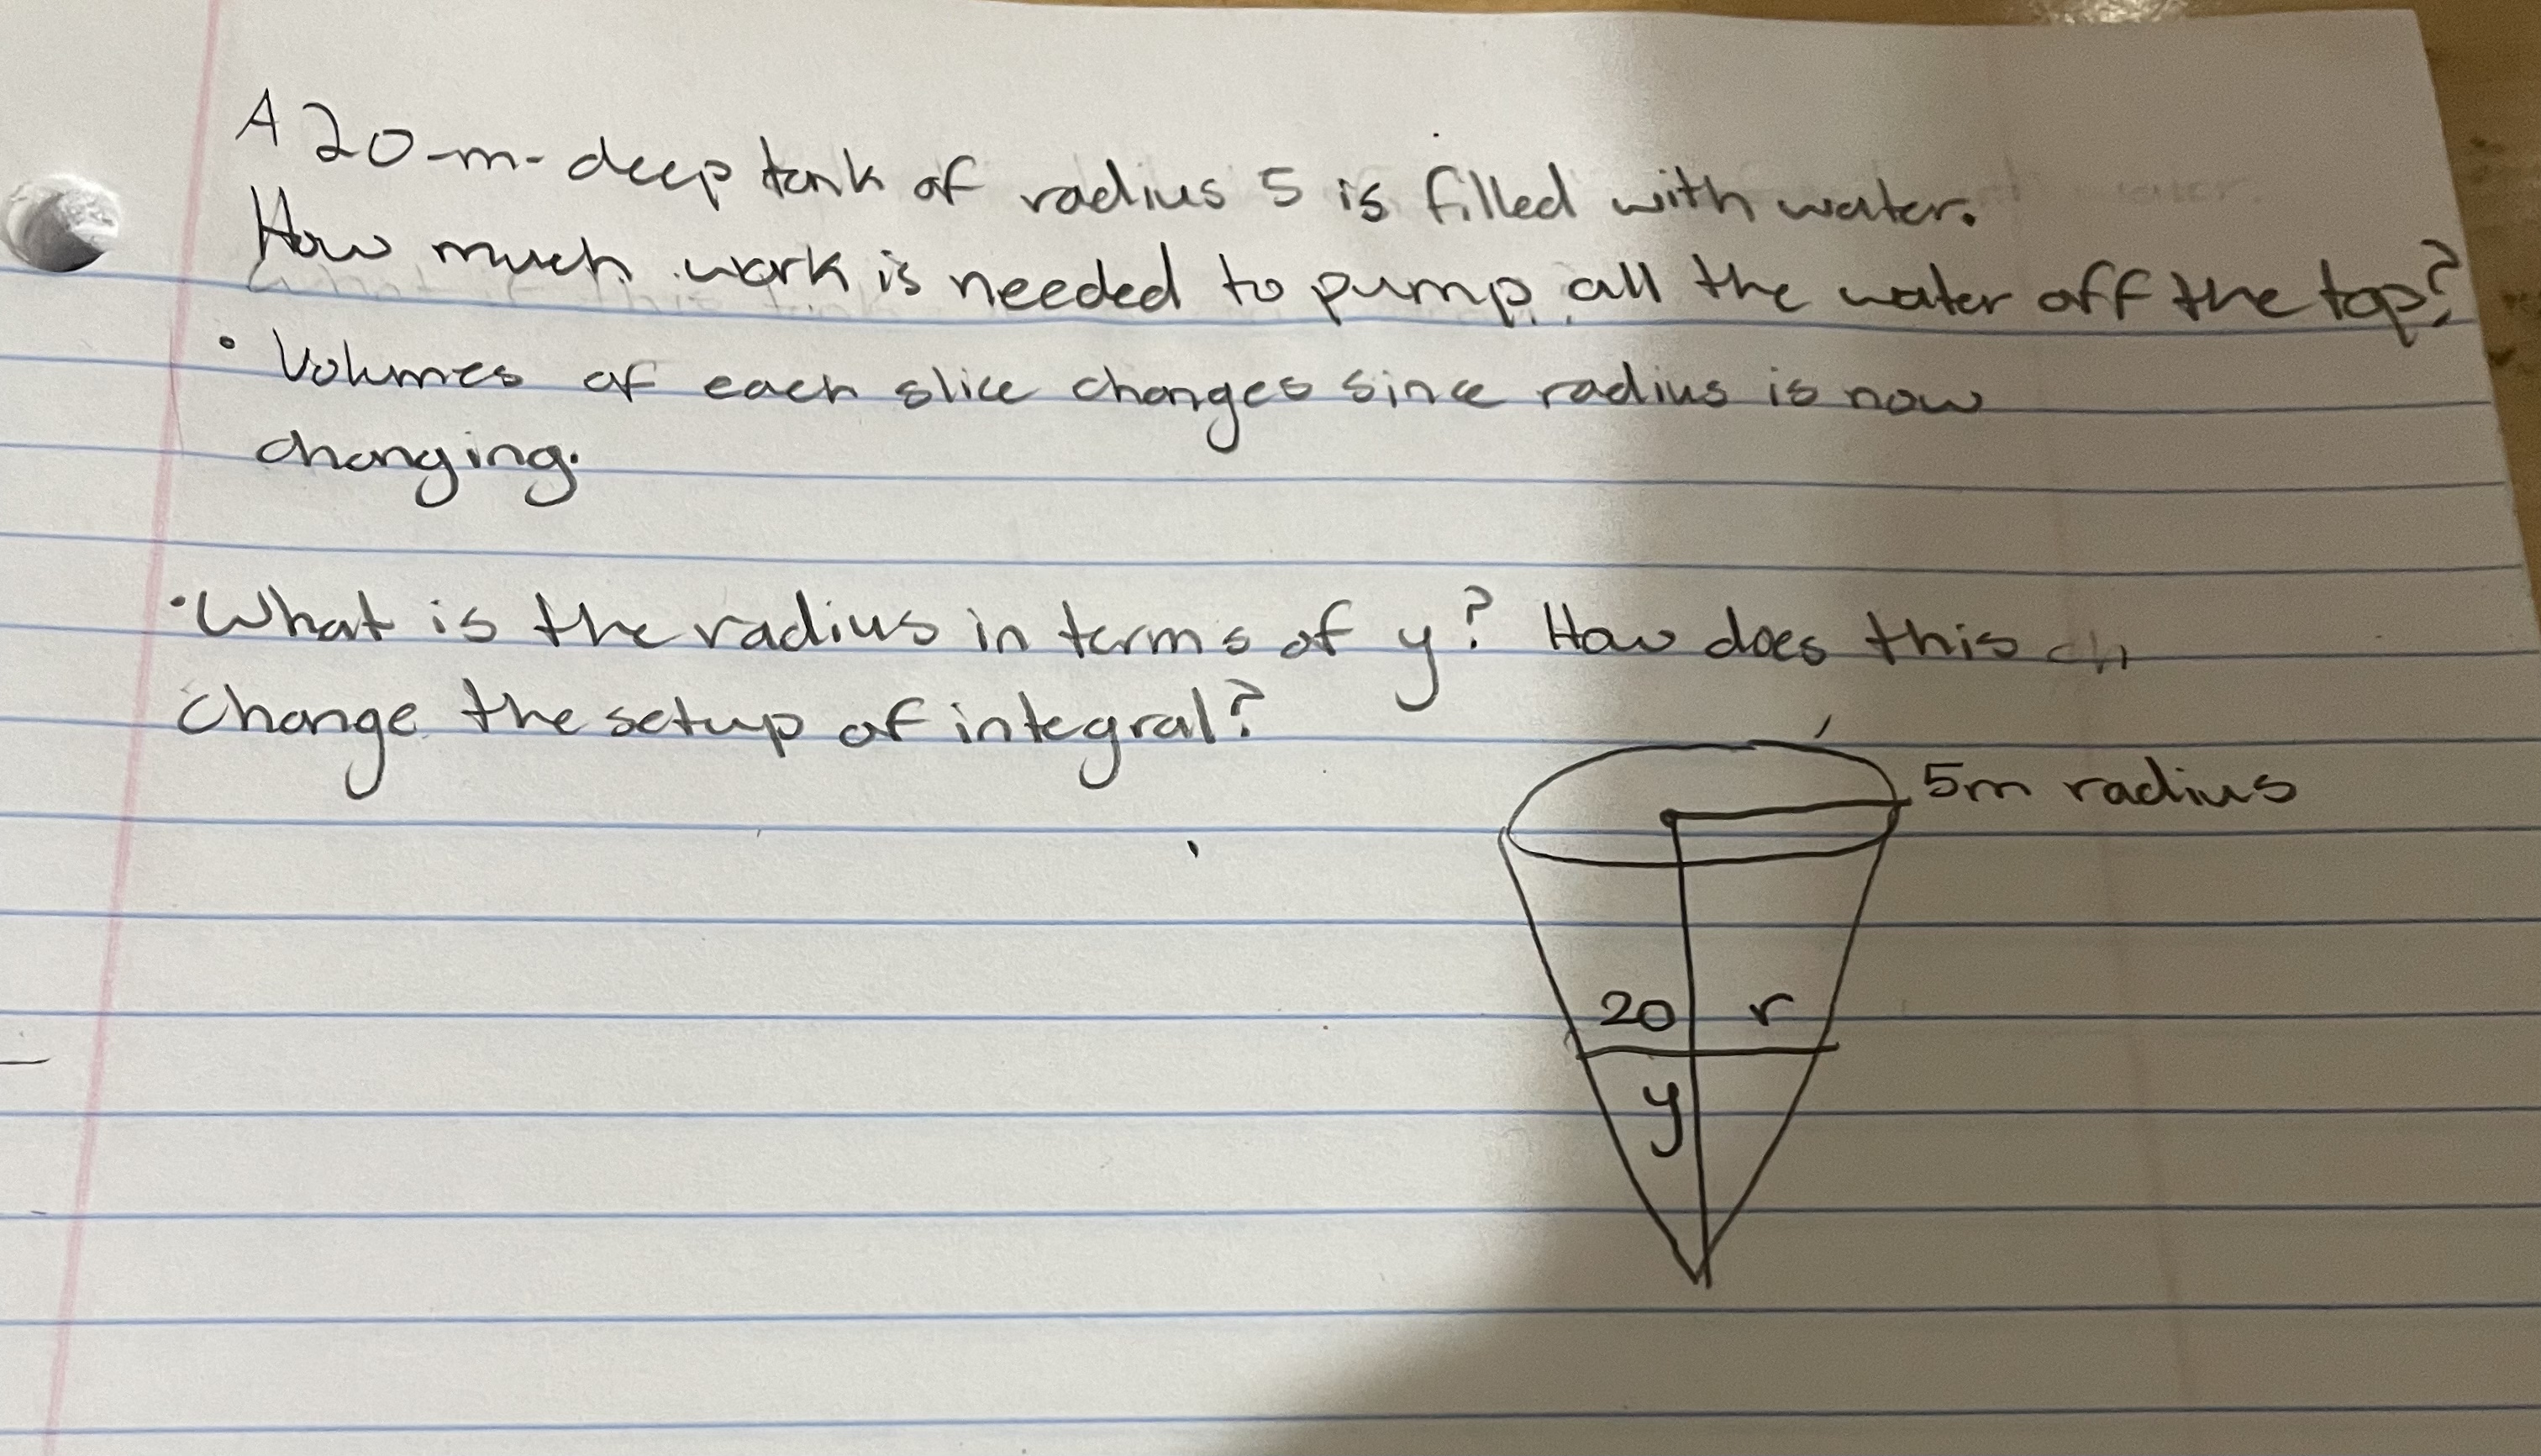 A 20-m-deep tank of radius 5 is filled with water.
How much work is needed to pump all the water off the top?
• Volumes of each slice changes since radius is now
changing.
• What is the radius in terms of y? How does this ch
change the setup of integral?
5m radius
20 r
y